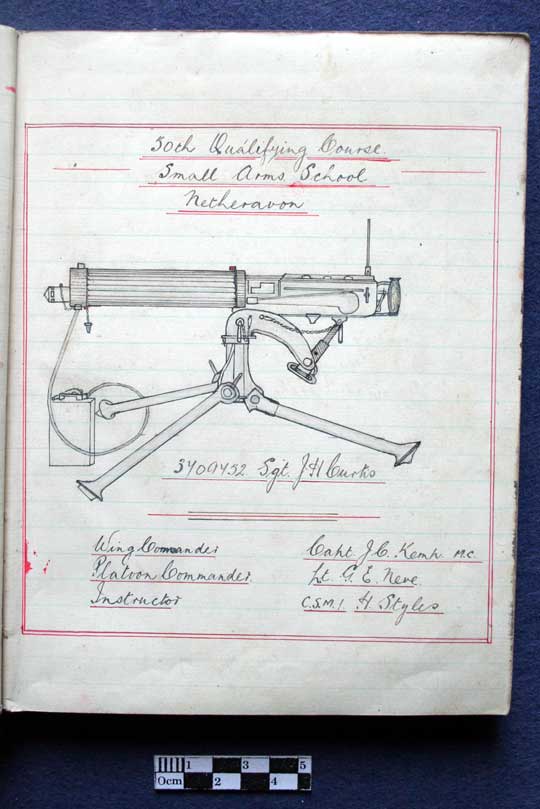 50th Qualifying Course
Small Arms School
Netheravon
3709452 Sgt. J H Curks
Wing Commander
Capt. J. C. Kemp. M.C.
Platoon Commander.
Lt. G. E. Neve.
Instructor
C.S.M.I. H Styles
0cm 1 2 3 4 5